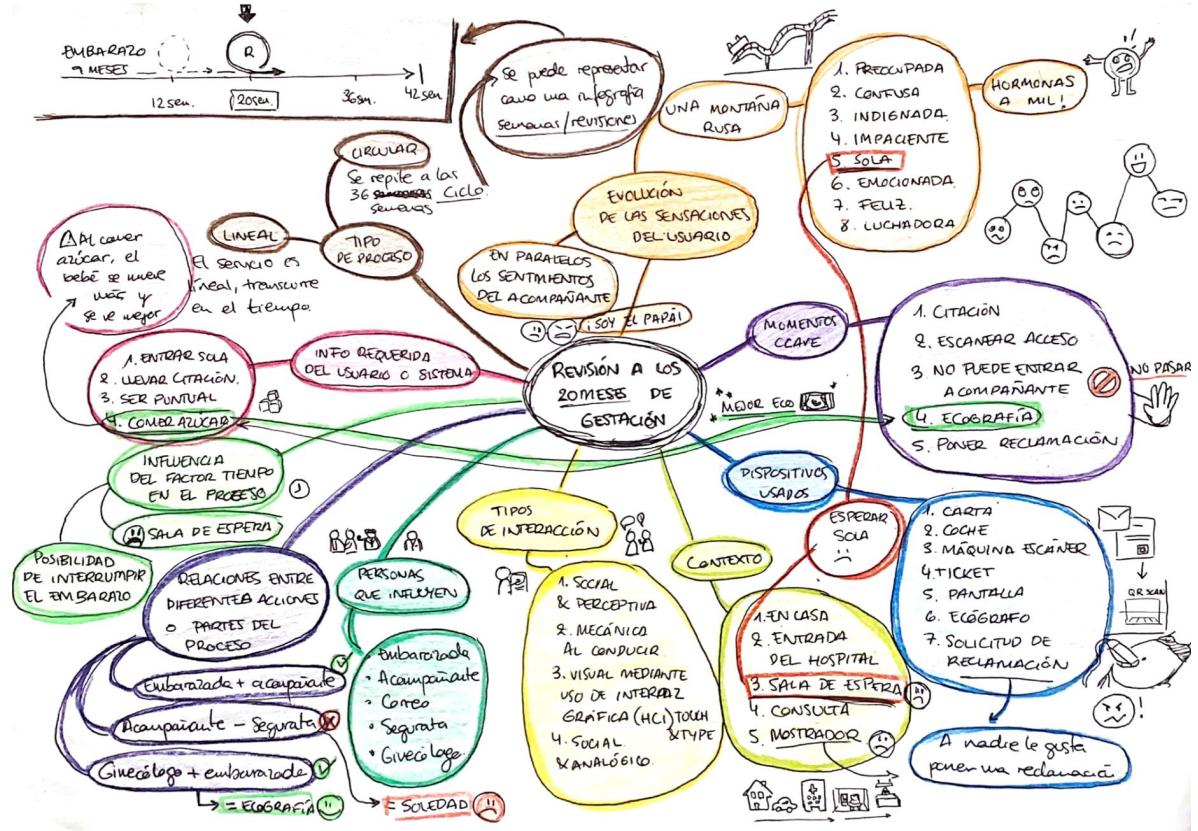 EMBARAZO
9 MESES
R
12 sem.
20 sem.
36 sm.
42 sem.
Se puede representar
como una infografía
semanas/revisiones
CIRCULAR
Se repite a las
36 semanas Ciclo.
semanas
LINEAL
El servicio es
lineal, transcurre
en el tiempo.
TIPO
DE PROCESO
UNA MONTAÑA
RUSA
1. PREOCUPADA
2. CONFUSA
3. INDIGNADA
4. IMPACIENTE
5 SOLA
6. EMOCIONADA.
7. FELIZ.
8. LUCHADORA
HORMONAS
A MIL!
EVOLUCIÓN
DE LAS SENSACIONES
DEL USUARIO
EN PARALELOS
LOS SENTIMIENTOS
DEL ACOMPAÑANTE
¡SOY EL PAPÁ!
REVISIÓN A LOS
20 MESES DE
GESTACIÓN
MOMENTOS
CLAVE
1. CITACIÓN
2. ESCANEAR ACCESO
3. NO PUEDE ENTRAR
ACOMPAÑANTE
4. ECOGRAFÍA
5. PONER RECLAMACIÓN
NO PASAR
MEJOR ECO
Al comer
azúcar, el
bebé se mueve
más y
se ve mejor
INFO REQUERIDA
DEL USUARIO O SISTEMA
1. ENTRAR SOLA
2. LLEVAR CITACIÓN.
3. SER PUNTUAL
4. COMER AZÚCAR
INFLUENCIA
DEL FACTOR TIEMPO
EN EL PROCESO
SALA DE ESPERA
POSIBILIDAD
DE INTERRUMPIR
EL EMBARAZO
RELACIONES ENTRE
DIFERENTEA ACCIONES
O PARTES DEL
PROCESO
Embarazada + acompañante
Acompañante - Segurata
Ginecólogo + embarazada
= ECOGRAFÍA
= SOLEDAD
PERSONAS
QUE INFLUYEN
• Embarazada
• Acompañante
• Correo
• Segurata
• Ginecólogo.
TIPOS
DE INTERACCIÓN
1. SOCIAL
& PERCEPTIVA
2. MECÁNICA
AL CONDUCIR.
3. VISUAL MEDIANTE
USO DE INTERFAZ
GRÁFICA (HCI) TOUCH
&TYPE
4. SOCIAL
& ANALÓGICO.
CONTEXTO
1. EN CASA
2. ENTRADA
DEL HOSPITAL
3. SALA DE ESPERA
4. CONSULTA
5. MOSTRADOR
ESPERAR
SOLA
DISPOSITIVOS
USADOS
1. CARTA
2. COCHE
3. MÁQUINA ESCÁNER
4. TICKET
5. PANTALLA
6. ECÓGRAFO
7. SOLICITUD DE
RECLAMACIÓN
QR SCAN
!
A nadie le gusta
poner una reclamación